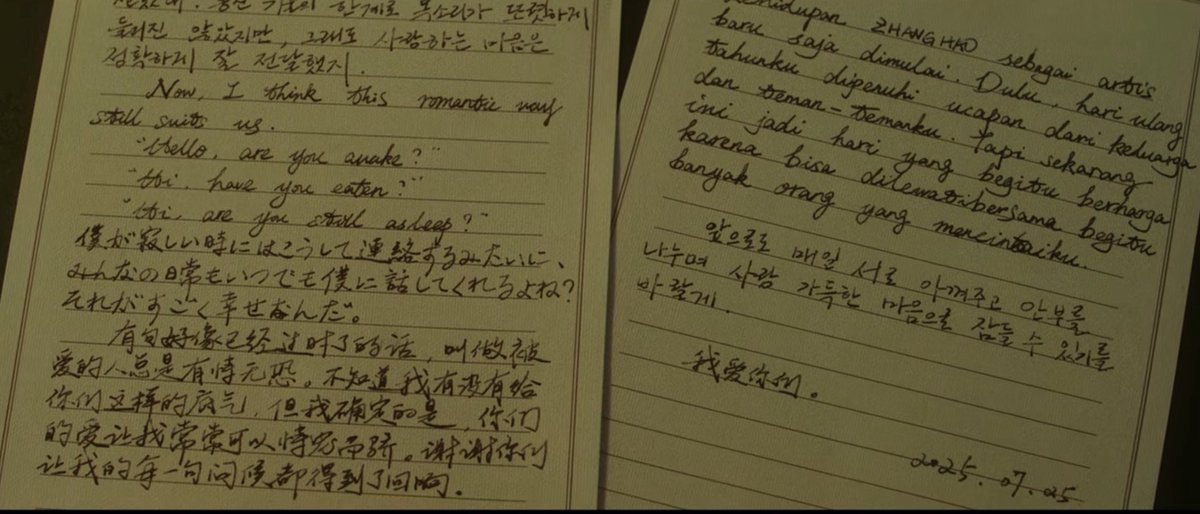 통신 기술의 한계로 목소리가 또렷하게
들리진 않았지만, 그래도 사랑하는 마음은
정확하게 잘 전달했지.
Now, I think this romantic way
still suits us.
"Hello, are you awake?"
"Hi, have you eaten?"
"Hi, are you still asleep?"
僕が寂しい時にはこうして連絡するみたいに、
みんなの日常もいつでも僕に話してくれるよね?
それがすごく幸せなんだ。
有句好像已经过时了的话，叫做被
爱的人总是有恃无恐。不知道我有没有给
你们这样的底气，但我确定的是，你们
的爱让我常常可以恃宠而骄。谢谢你们
让我的每一句问候都得到了回响。
ZHANG HAO sebagai artis
baru saja dimulai. Dulu, hari ulang
tahunku dipenuhi ucapan dari keluarga
dan teman-temanku. Tapi sekarang
ini jadi hari yang begitu berharga
karena bisa dilewati bersama begitu
banyak orang yang mencintaiku.
앞으로도 매일 서로 아껴주고 안부를
나누며 사랑 가득한 마음으로 잠들 수 있기를
바랄게.
我爱你们。
2025.07.25